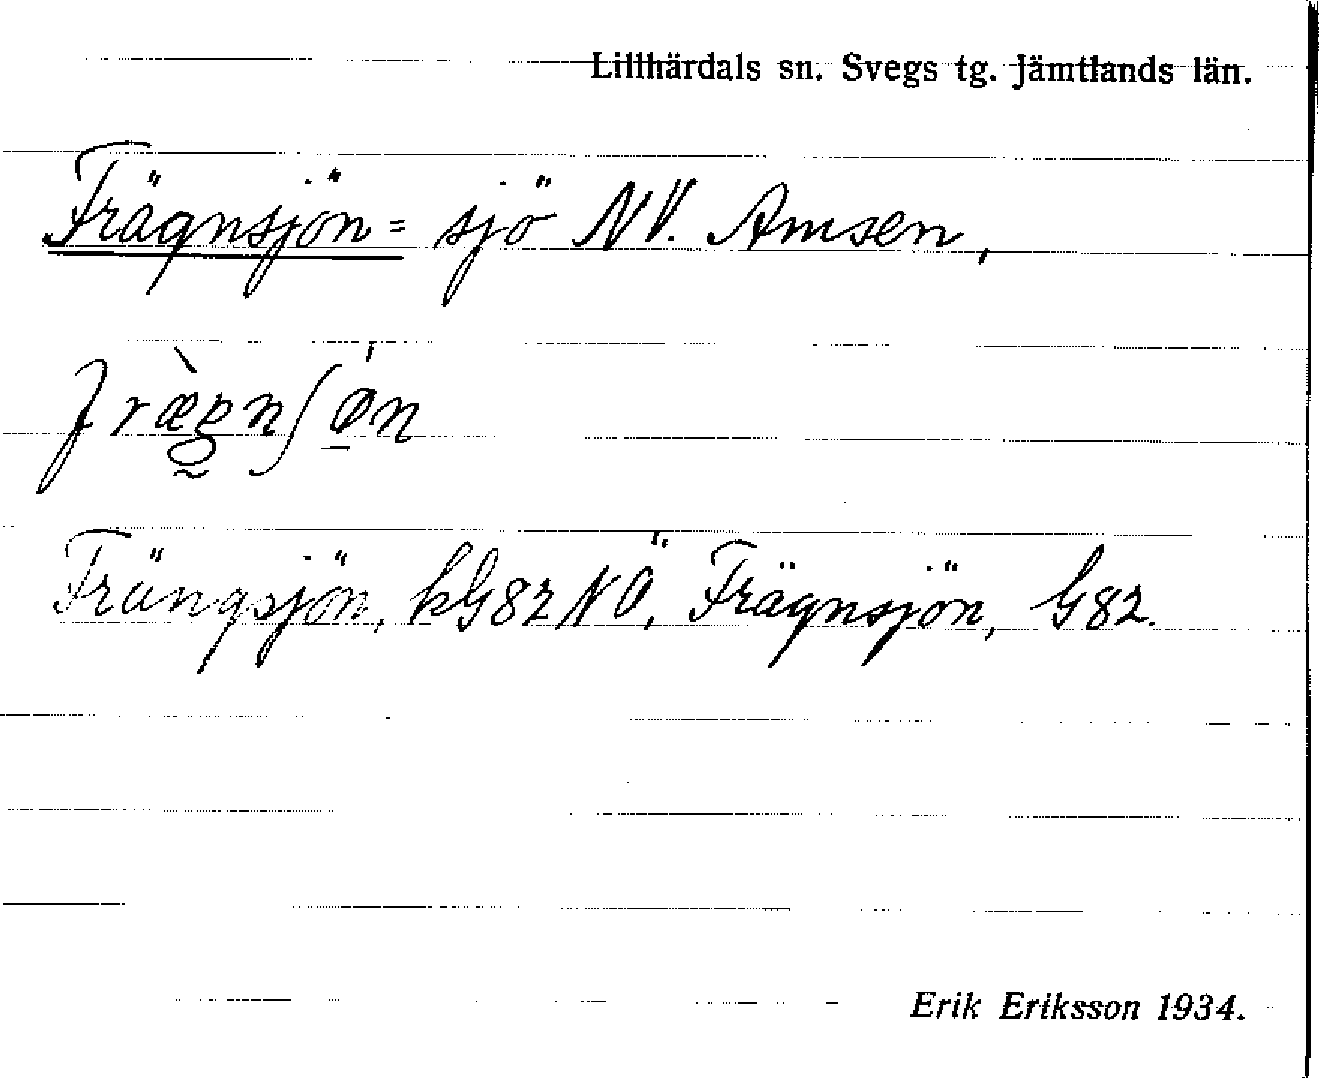 Lillhärdals sn. Svegs tg. Jämtlands län.
Frägnsjön = sjö NV. Amsen,
fræ̀gnʃǿ̱n
Frängsjön, kG82NÖ, Frägnsjön, G82.
Erik Eriksson 1934.